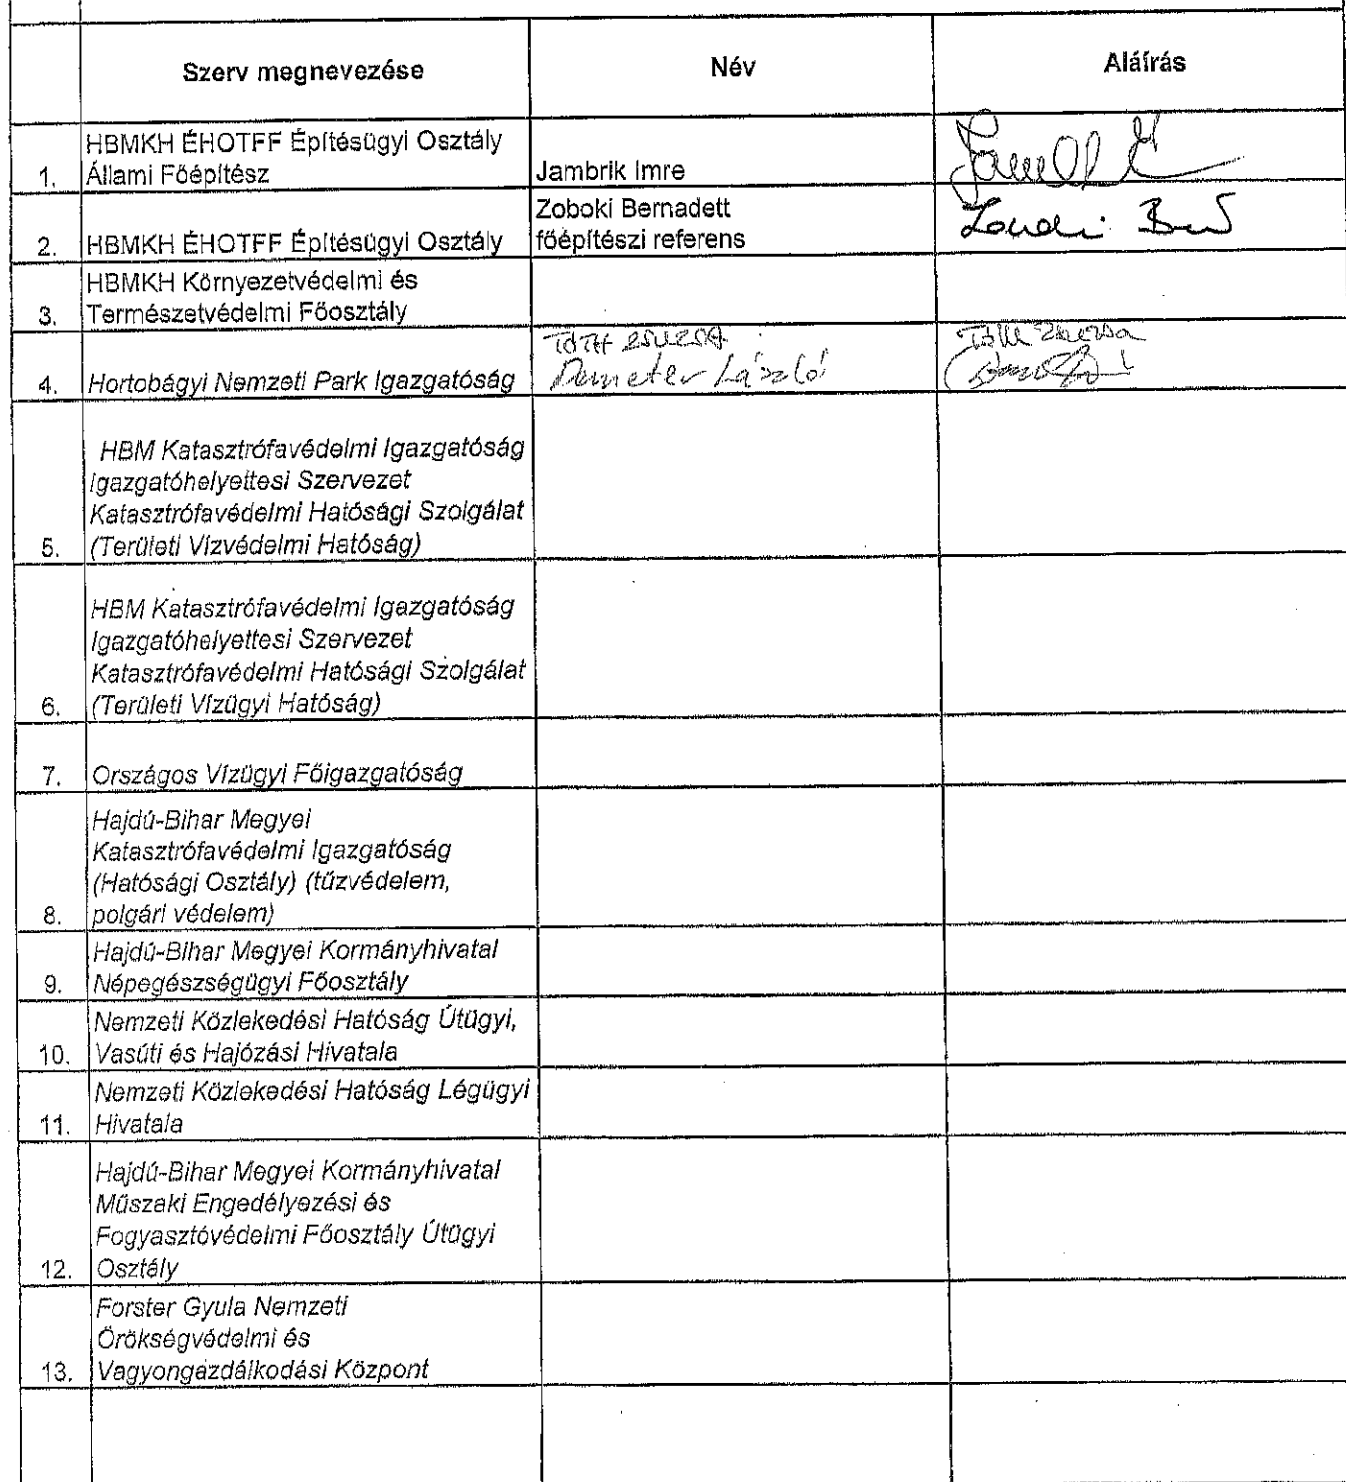 Szerv megnevezése Név Aláírás
HBMKH ÉHOTFF Építésügyi Osztály
1. Állami Főépítész Jambrik Imre
Zoboki Bernadett
2. HBMKH ÉHOTFF Építésügyi Osztály főépítészi referens
HBMKH Környezetvédelmi és
3. Természetvédelmi Főosztály
Tóth Zsuzsa Tóth Zsuzsa
4. Hortobágyi Nemzeti Park Igazgatóság Demeter László
HBM Katasztrófavédelmi Igazgatóság
Igazgatóhelyettesi Szervezet
Katasztrófavédelmi Hatósági Szolgálat
5. (Területi Vízvédelmi Hatóság)
HBM Katasztrófavédelmi Igazgatóság
Igazgatóhelyettesi Szervezet
Katasztrófavédelmi Hatósági Szolgálat
6. (Területi Vízügyi Hatóság)
7. Országos Vízügyi Főigazgatóság
Hajdú-Bihar Megyei
Katasztrófavédelmi Igazgatóság
(Hatósági Osztály) (tűzvédelem,
8. polgári védelem)
Hajdú-Bihar Megyei Kormányhivatal
9. Népegészségügyi Főosztály
Nemzeti Közlekedési Hatóság Útügyi,
10. Vasúti és Hajózási Hivatala
Nemzeti Közlekedési Hatóság Légügyi
11. Hivatala
Hajdú-Bihar Megyei Kormányhivatal
Műszaki Engedélyezési és
Fogyasztóvédelmi Főosztály Útügyi
12. Osztály
Forster Gyula Nemzeti
Örökségvédelmi és
13. Vagyongazdálkodási Központ